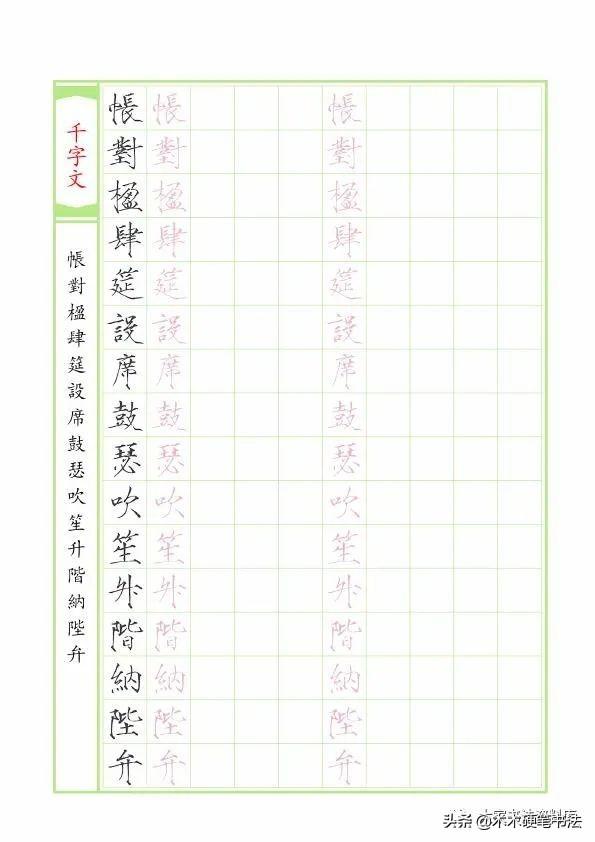 千字文
帳對楹肆筵設席鼓瑟吹笙升階納陛弁
帳對楹肆筵設席鼓瑟吹笙升階納陛弁
帳對楹肆筵設席鼓瑟吹笙升階納陛弁
帳對楹肆筵設席鼓瑟吹笙升階納陛弁
头条 @木木硬笔书法